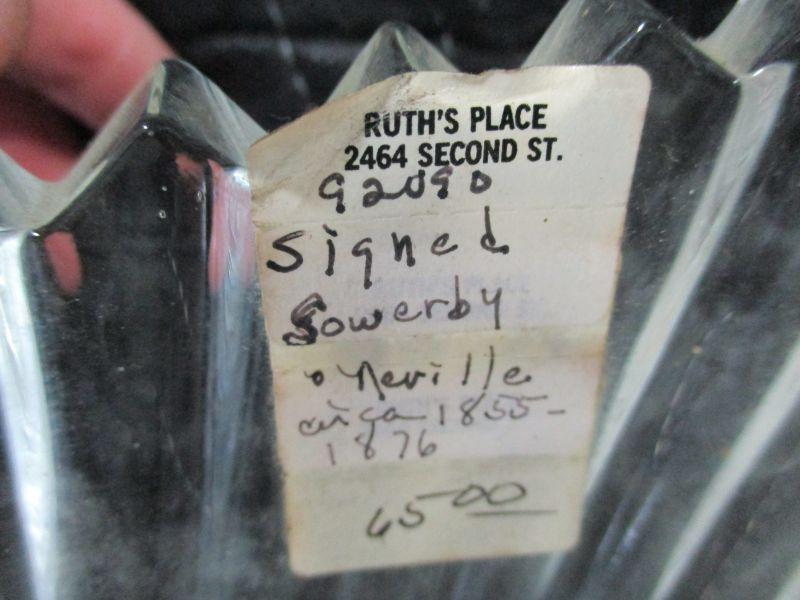 RUTH'S PLACE
2464 SECOND ST.
92090
Signed
Sowerby
Neville
circa 1855-
1876
65 00